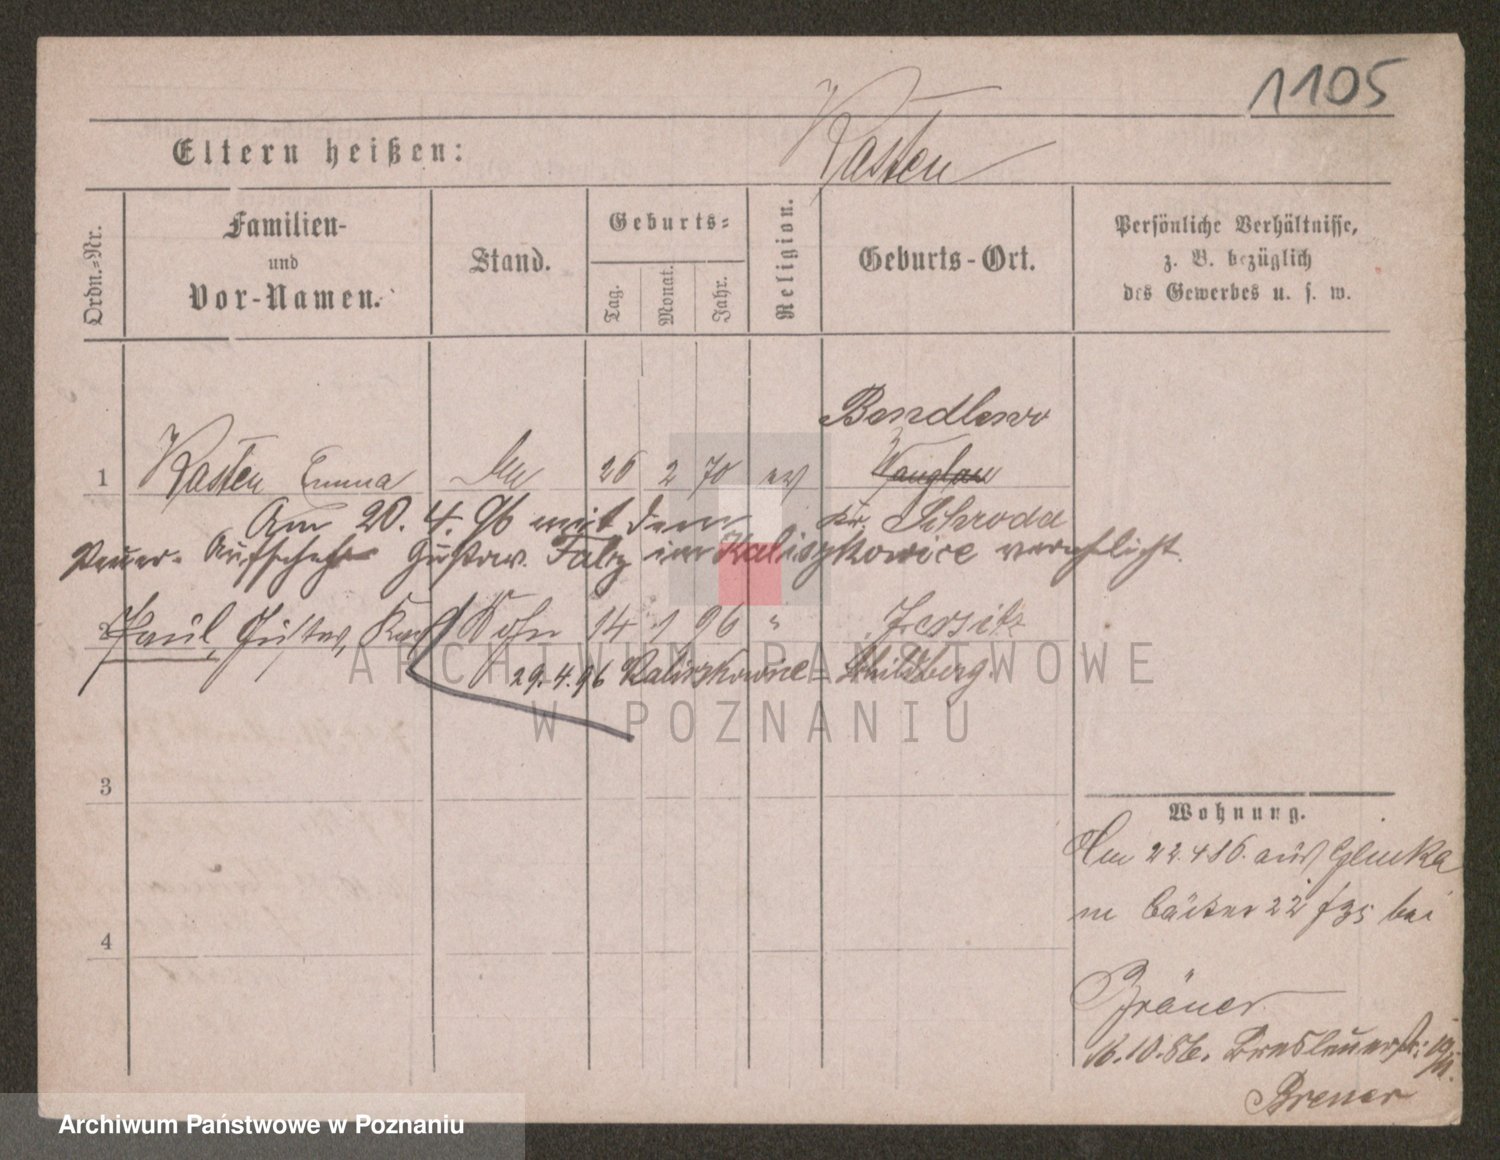 1105
Kasten
Eltern heißen:
Ordn.-Nr.
Familien-
und
Vor-Namen.
Stand.
Geburts-
Tag.
Monat.
Jahr.
Religion.
Geburts-Ort.
Persönliche Verhältnisse,
z. B. bezüglich
des Gewerbes u. s. w.
Bendlewo
1 Kasten Emma 26 2 70 ev
Am 20. 4. 96 mit dem Kr. Schroda
Aufseher Gustav Falz in Kaliszkowice verehelicht
2 Paul, Gustav, Karl Sohn 14 1 96 " Jersitz
29.4.96 Kaliszkowice Schildberg.
ARCHIWUM PAŃSTWOWE
W POZNANIU
3
4
Wohnung.
Am 22.4 86. aus Glinka
22 bei
Bräuer
16.10.86. Breslauerstr.
Brener
Archiwum Państwowe w Poznaniu